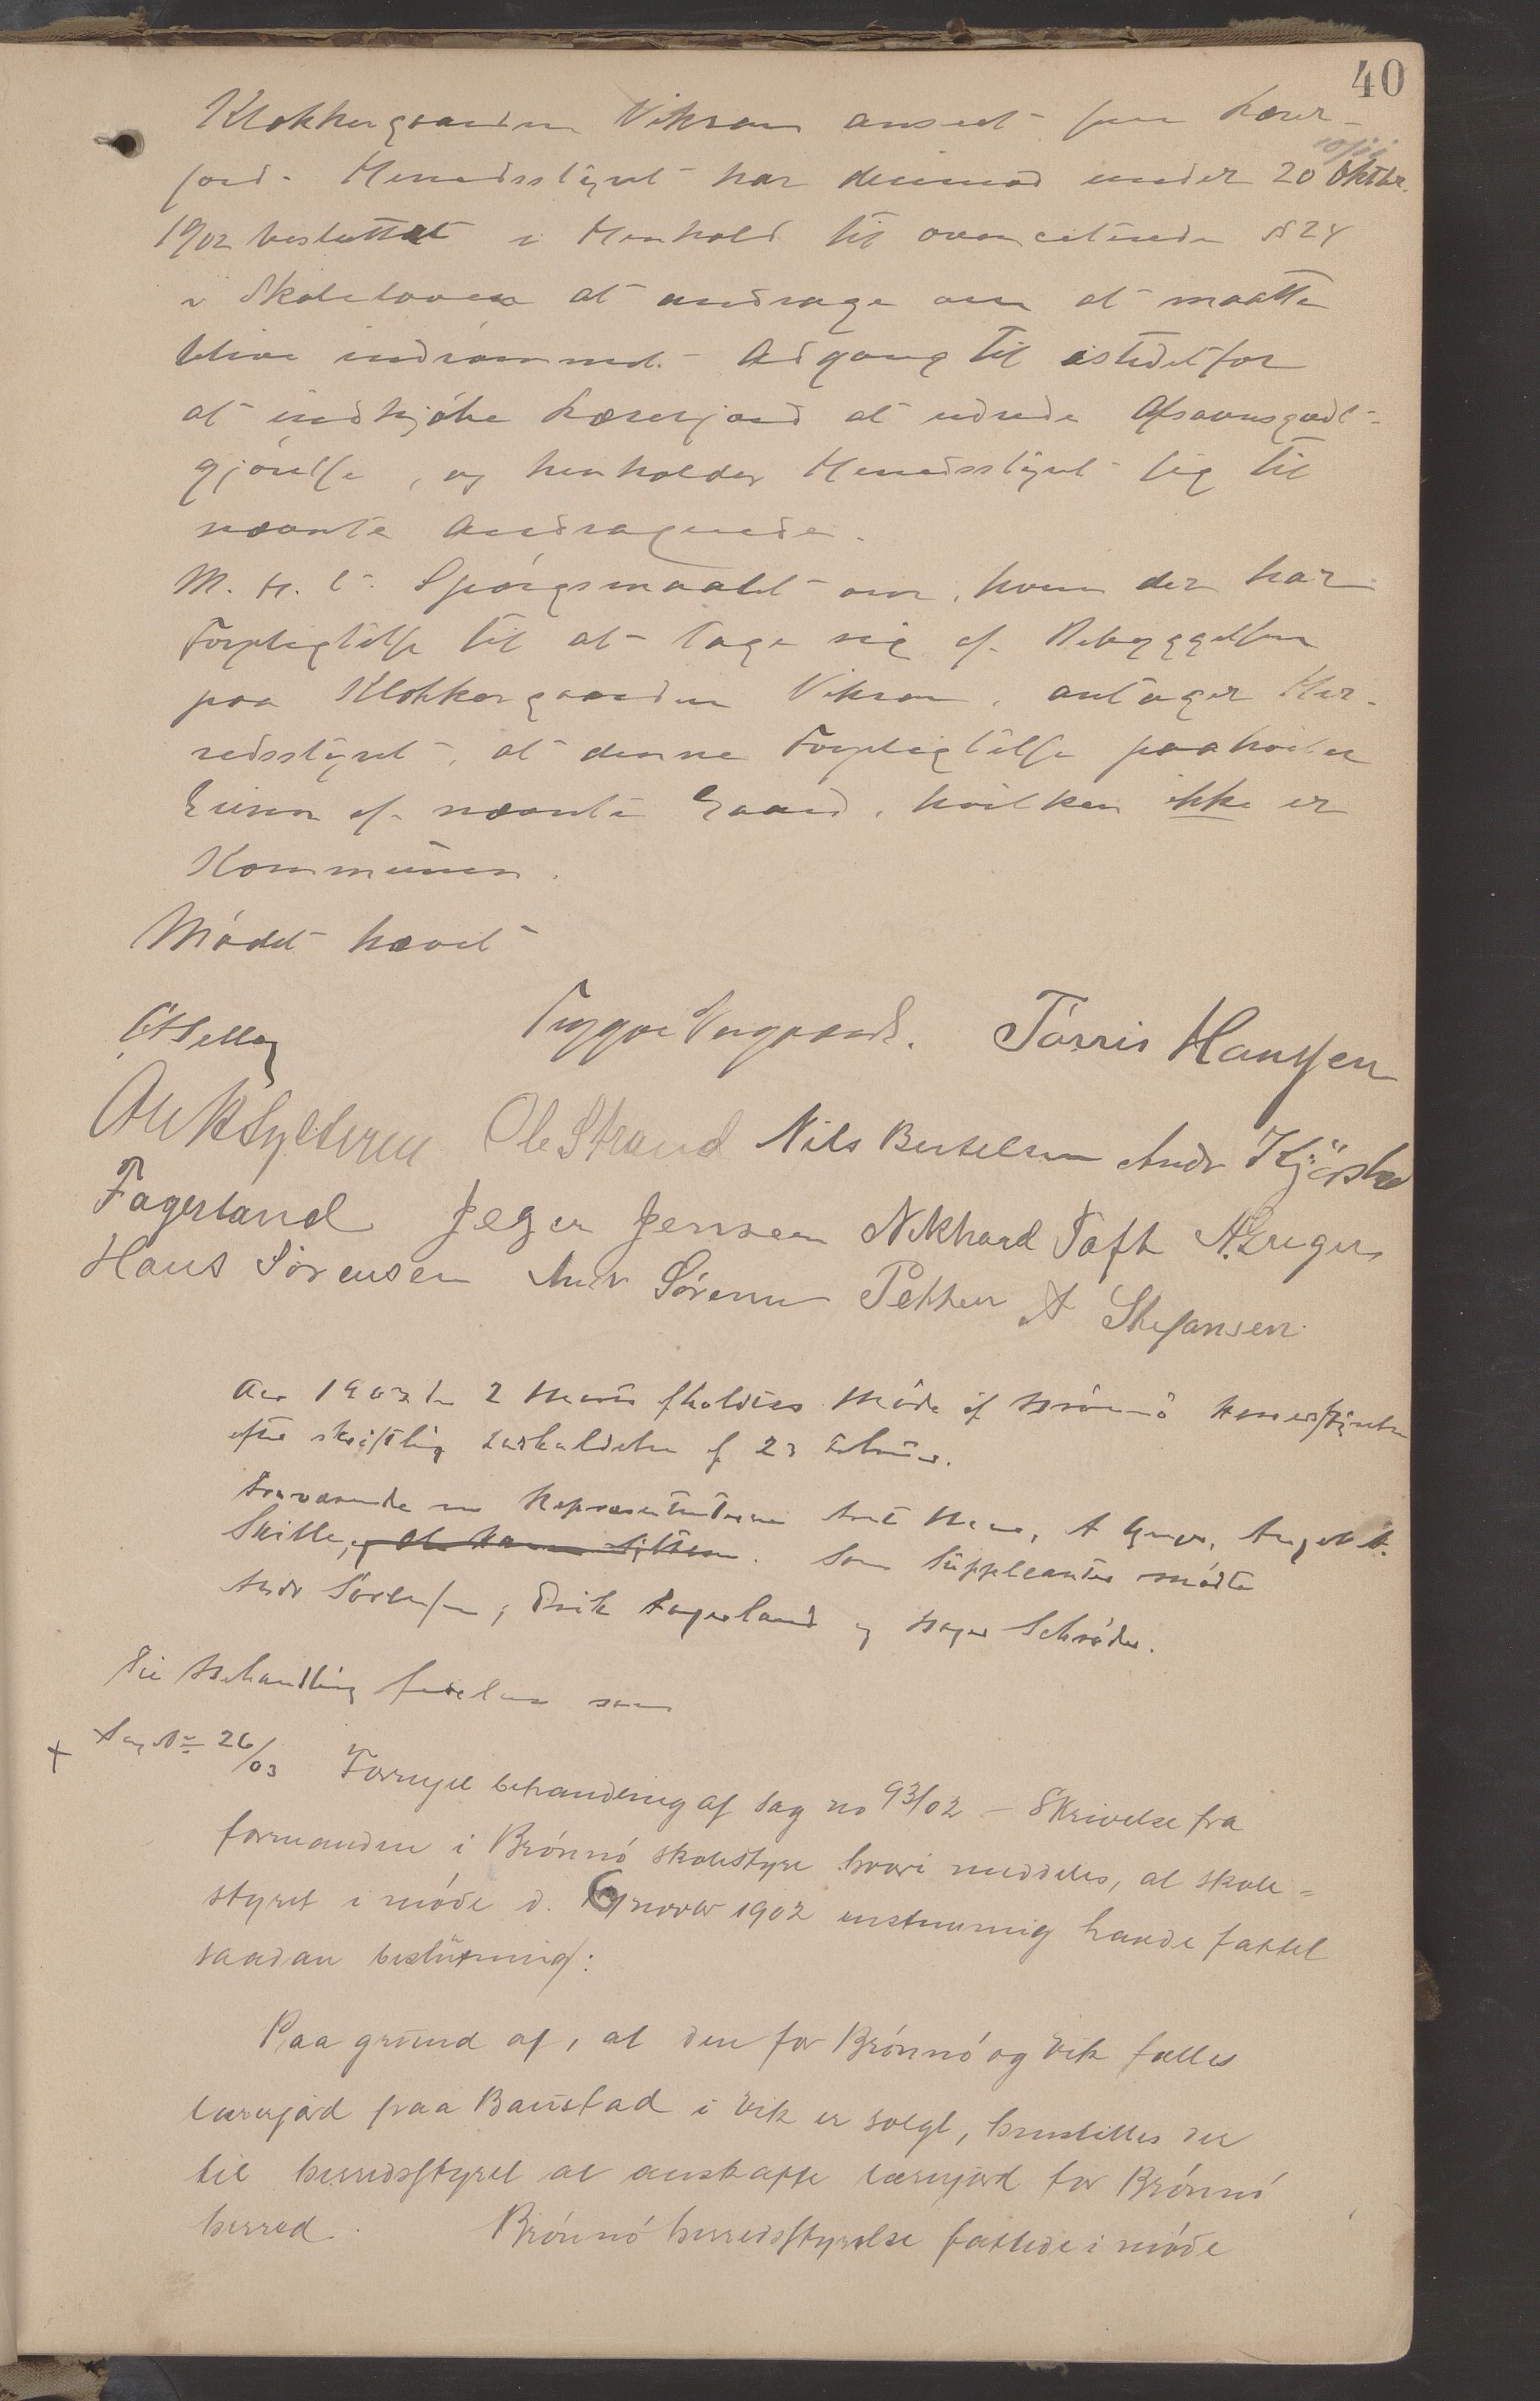 40
Klokkergaarden Viksaas anseet som Lærer-
jord. Herredsstyret har derimod under 20 Oktbr.
1902 besluttet i Henhold til ovenciterede § 24
i Skoleloven at andrage om at maatte
blive indrømmet Adgang til istedetfor
at indkjøbe Lærerjord at udrede Afsavnsgodt-
gjørelse, og henholder Herredsstyret sig til
nævnte Andragende.
M. H. t. Spørgsmaalet om, hvem der har
Forpligtelse til at tage sig af Bebyggelsen
paa Klokkergaarden Viksaas, antager Her-
redsstyret, at denne Forpligtelse paahviler
Eieren af nævnte Gaard, hvilken ikke er
Kommunen.
Mødet hævet
Tørris Hanssen
Ole Strand Nils Bertelsen Andr
Fagerland Jeger Jensen Nekhard Toft
Hans Sørensen Andr Sørensen Petter A Stefansen
Aar 1903 den 2 Marts afholdtes Møde af Brønnø Herredsstyre
efter skriftlig Indkaldelse af 23 Februar.
Fraværende var Repræsentanterne
Skille, og Ole . Som Suppleanter mødte
Andr Sørensen, Erik Fagerland og Schrøder.
Til Behandling forelaa
+ Sag No 26/03 Fornyet behandling af sag no 93/02 – Skrivelse fra
formanden i Brønnø skolestyre hvori meddeles, at skole=
styret i møde d. 6 novbr 1902 enstemmig havde fattet
saadan beslutning:
Paa grund af, at den for Brønnø og Vik fælles
lærerjord paa Baustad i Vik er solgt, henstilles der
til herredsstyret at anskaffe lærerjord for Brønnø
herred. Brønnø herredsstyrelse fattede i møde